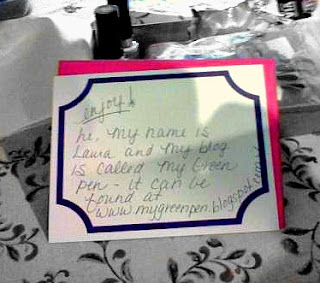 enjoy!
hi, my name is
Laura and my blog
is called my Green
pen - it can be
found at
www.mygreenpen.blogspot.com